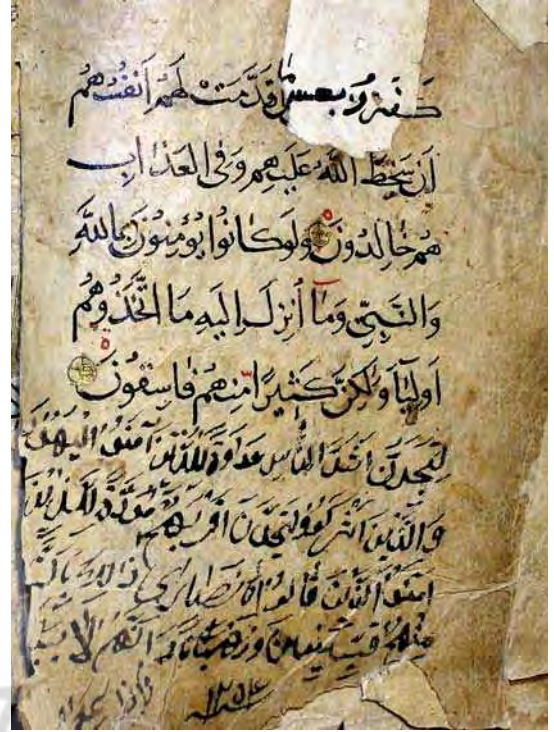 كَفَرُوا لبئس ما قَدَّمَتْ لَهُمْ اَنْفُسُهُمْ
اَنْ سَخِطَ اللّٰهُ عَلَيْهِمْ وَفِى الْعَذَابِ
هُمْ خَالِدُونَ وَلَوْ كَانُوا يُؤْمِنُونَ بِاللّٰهِ
وَالنَّبِىِّ وَمَا اُنْزِلَ اِلَيْهِ مَا اتَّخَذُوهُمْ
اَوْلِيَاءَ وَلٰكِنَّ كَثِيرًا مِنْهُمْ فَاسِقُونَ
لتجدن اشد الناس عداوة للذين آمنوا اليهود
والذين اشركوا ولتجدن اقربهم مودة للذين
امنوا الذين قالوا انا نصارى ذالك بان
منهم قسيسين ورهبانا وانهم لا يستكبرون
واذا سمعوا